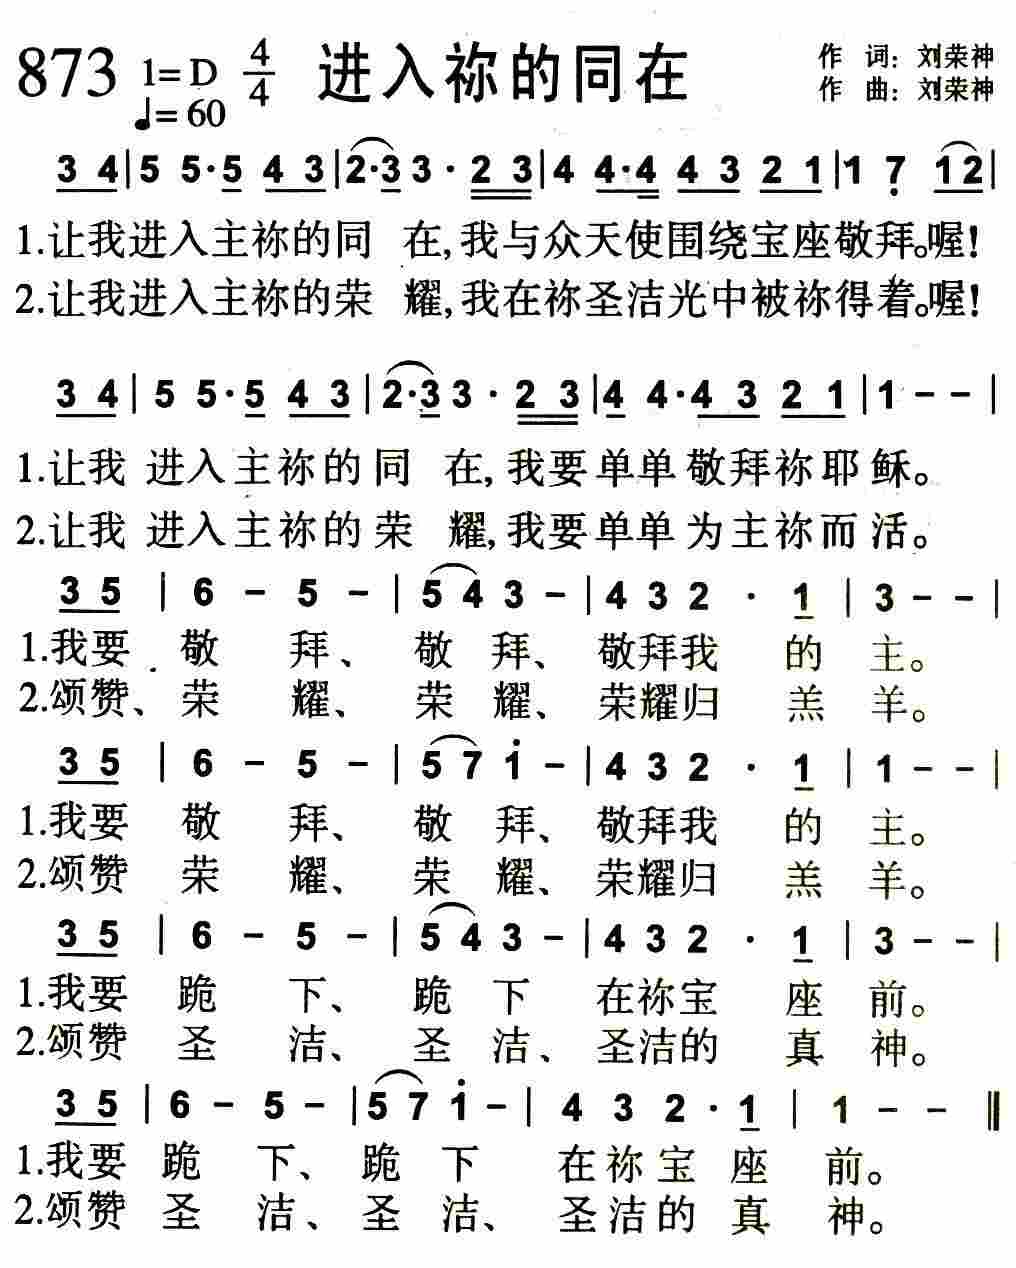 873 1=D 4/4 进入祢的同在 作 词：刘荣神
♩=60 作 曲：刘荣神
3 4|5 5·5 4 3|2·3 3 · 2 3|4 4·4 4 3 2 1|1 7 1 2|
1.让我进入主祢的同 在,我与众天使围绕宝座敬拜。喔!
2.让我进入主祢的荣 耀,我在祢圣洁光中被祢得着。喔!
3 4|5 5·5 4 3|2·3 3 · 2 3|4 4·4 3 2 1|1 - - |
1.让我 进入主祢的同 在,我要单单敬拜祢耶稣。
2.让我 进入主祢的荣 耀,我要单单为主祢而活。
3 5 | 6 - 5 - | 5 4 3 - | 4 3 2 · 1 | 3 - - |
1.我要 敬 拜、 敬 拜、 敬拜我 的 主。
2.颂赞、 荣 耀、 荣 耀、 荣耀归 羔 羊。
3 5 | 6 - 5 - | 5 7 i - | 4 3 2 · 1 | 1 - - |
1.我要 敬 拜、 敬 拜、 敬拜我 的 主。
2.颂赞 荣 耀、 荣 耀、 荣耀归 羔 羊。
3 5 | 6 - 5 - | 5 4 3 - | 4 3 2 · 1 | 3 - - |
1.我要 跪 下、 跪 下 在祢宝 座 前。
2.颂赞 圣 洁、 圣 洁、 圣洁的 真 神。
3 5 | 6 - 5 - | 5 7 i - | 4 3 2 · 1 | 1 - - ‖
1.我要 跪 下、 跪 下 在祢宝 座 前。
2.颂赞 圣 洁、 圣 洁、 圣洁的 真 神。